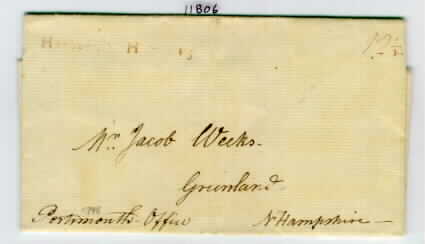 11806
Mr. Jacob Weeks.
Greenland.
Portsmouth Office N Hampshire